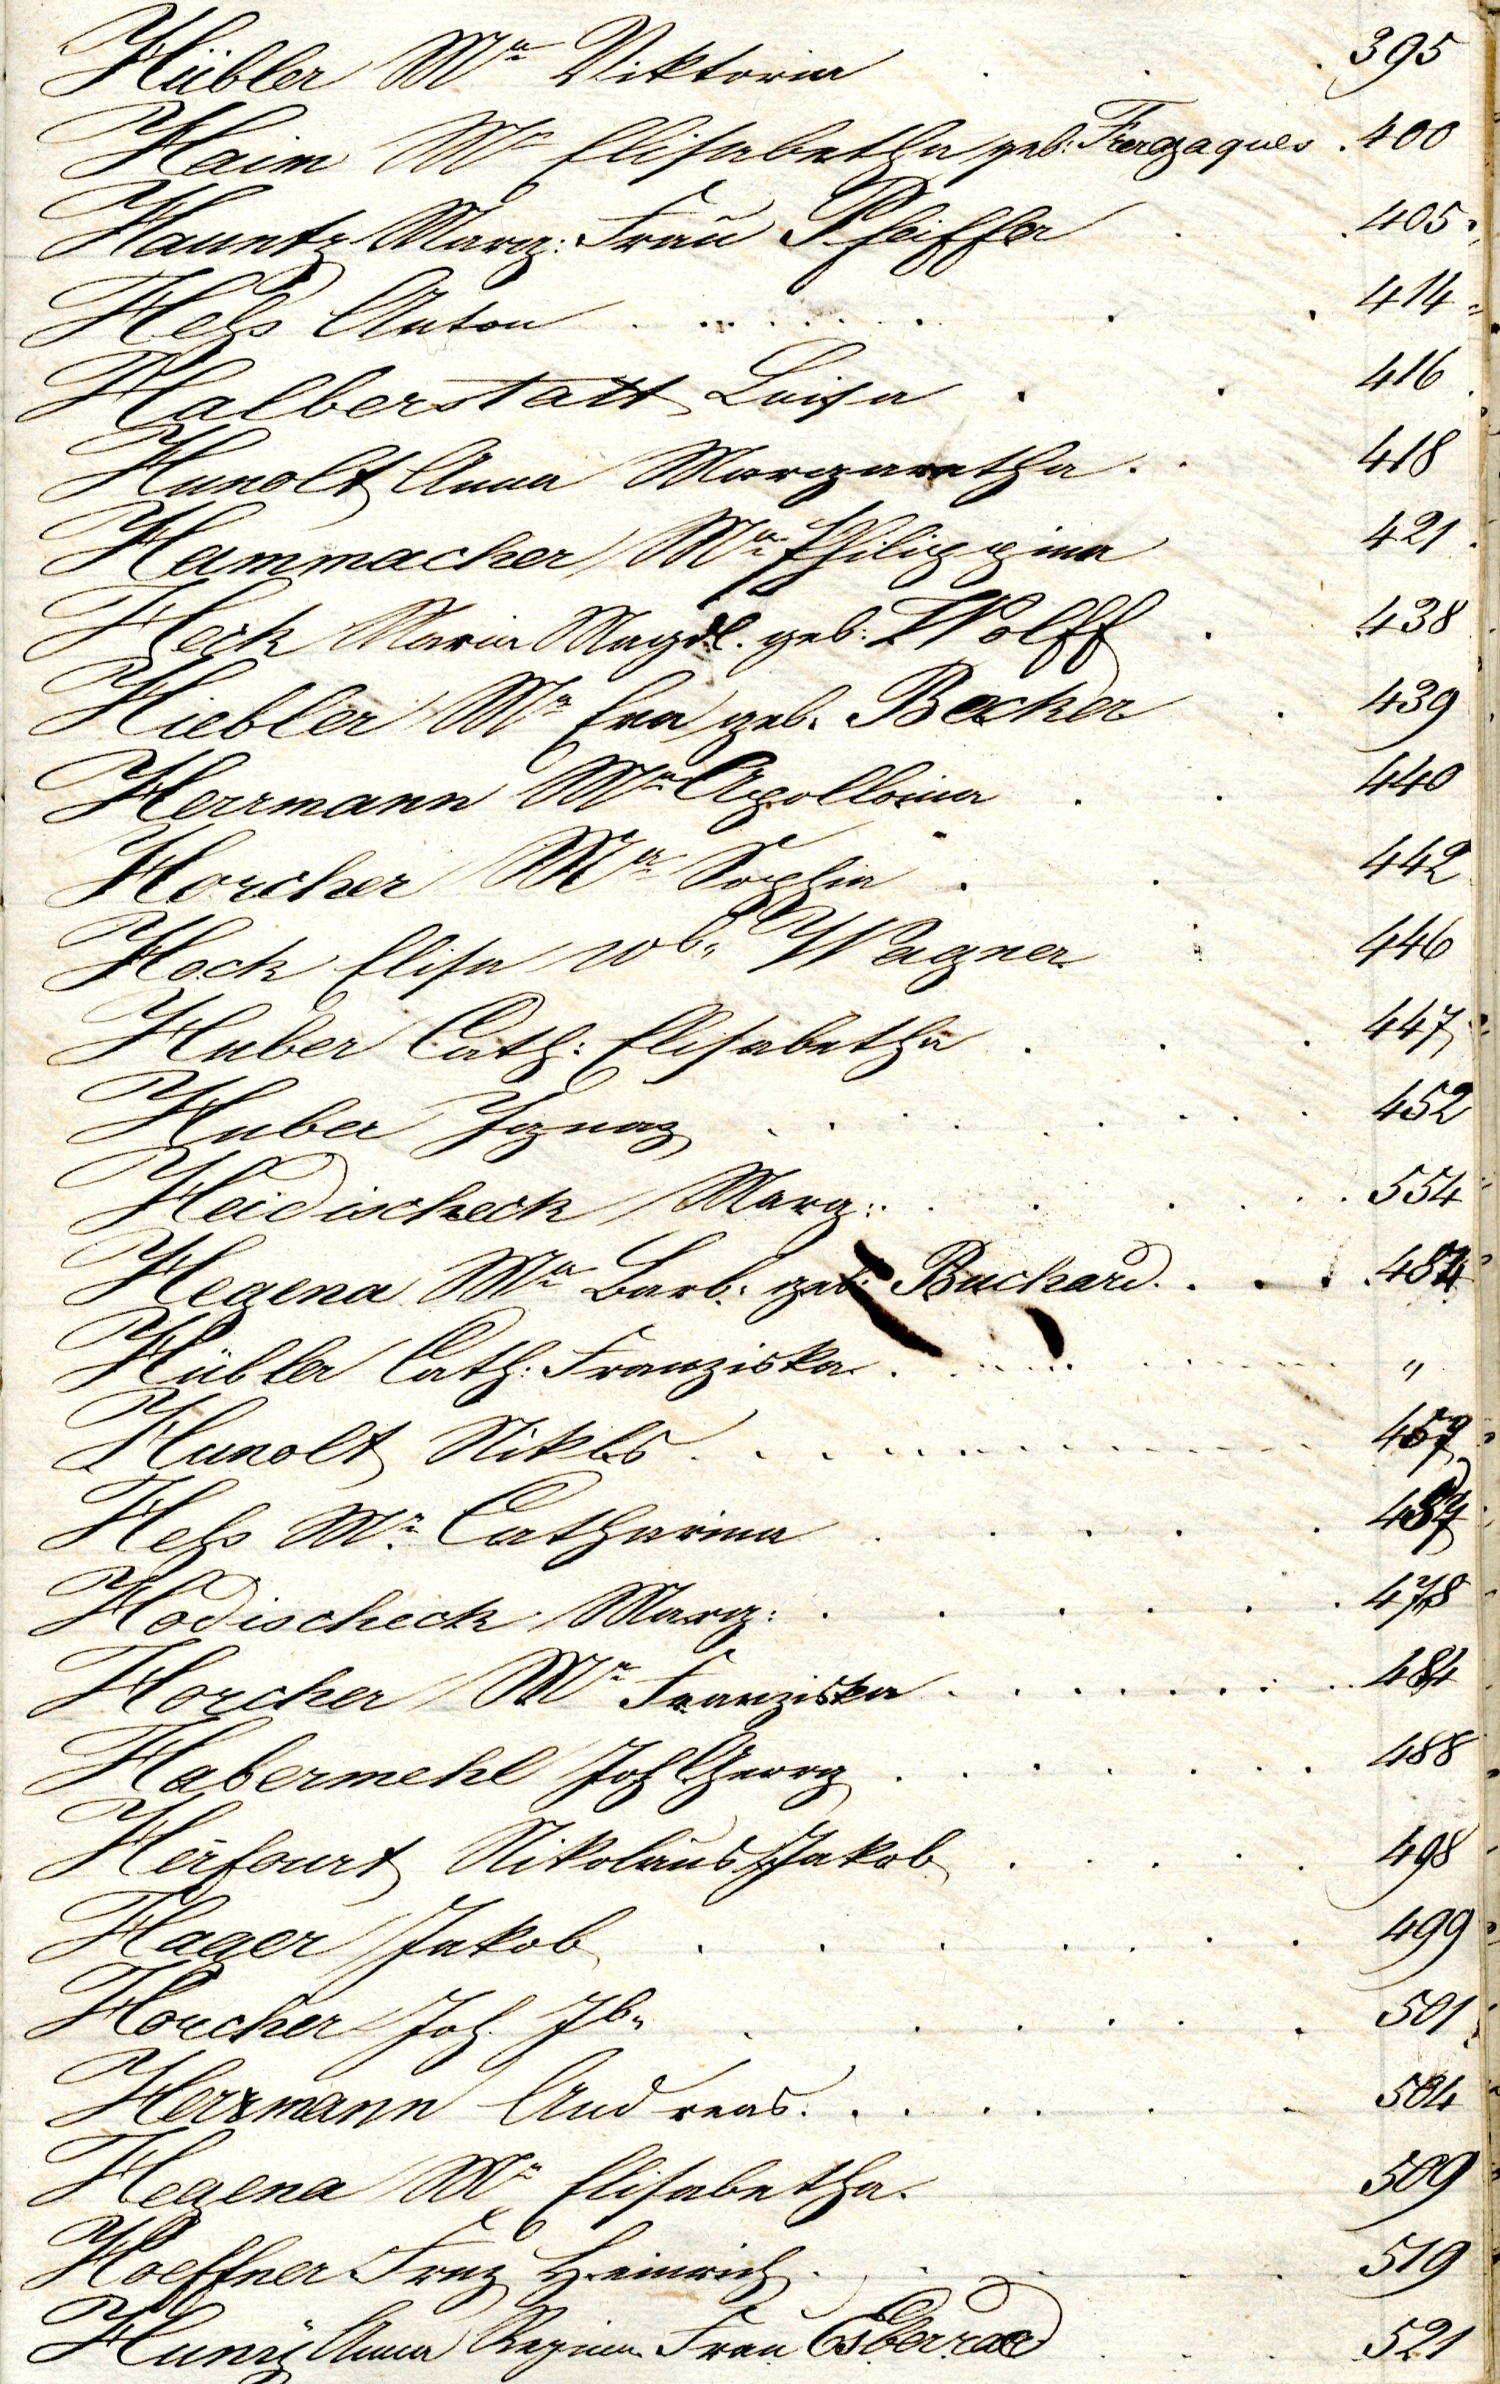 Hübler Mª Viktoria . . . 395
Haim Mª Elisabetha geb: . 400
Hauntz Marg: Frau Pfeiffer . . 405
Hels Anton . . . . . 414
Halberstatt Luisa . . 416
Hunolt Anna Margaretha . . 418
Hammacher Mª Philippina 421
Heck Maria Magdl. geb: Wolff . 438
Hiebler Mª Eva geb. Becker . 439
Herrmann Mª Apollonia . . 440
Horcher Mª Sophia . . 442
Hock Elisa Wb. Wagner 446
Huber Cath: Elisabetha . . . 447
Huber Ignaz . . . . . . 452
Heidischeck Marg: . . . . . 554
Hegena Mª Barb: geb: Buchard . . . .
Hübler Cath: Franziska . . . . . "
Hunolt Nikls . . . . . . 457
Hels Mª Catharina . . . . .
Hodischeck Marg: . . . . . . 478
Horcher Mª Franziska . . . . . . . 484
Habermehl Joh Georg . . . . . . . 488
Herfourt Nikolaus Jakob . . . . . 498
Hager Jakob . . . . . . 499
Horcher Joh. Jb. . . . . . . 501
Herrmann Andreas . . . . . . 504
Hegena Mª Elisabetha. 509
Hoeffner Frnz Heinrich . . . . . 519
Anna Regina Frau 521